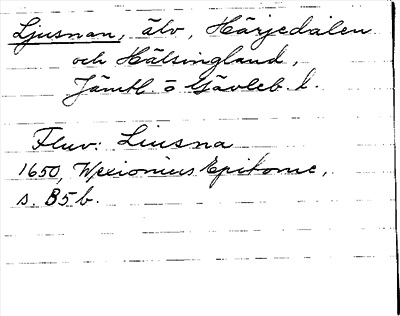 Ljusnan, älv, Härjedalen
och Hälsingland,
Jämtl. o Gävleb. l.
Fluv: Liusna
1650, Wexionius Epitome,
s. B5b.